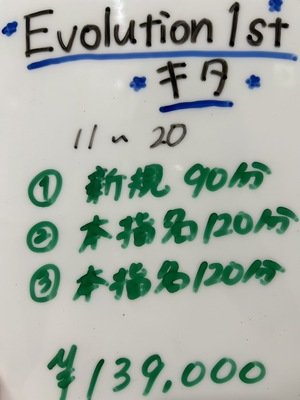 Evolution 1st
キタ
11~20
① 新規 90分
② 本指名 120分
③ 本指名 120分
¥139,000